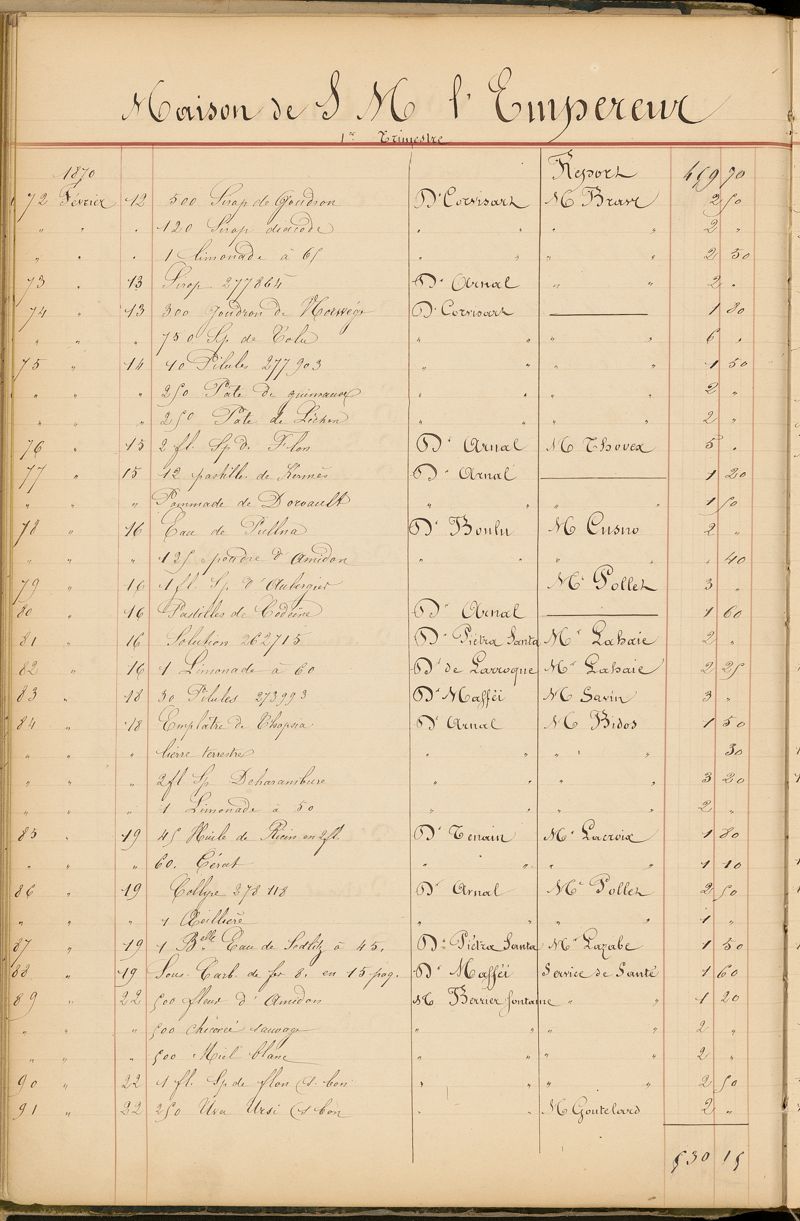 Maison de S M l'Empereur
1er Trimestre
1870 Report 459 90
72 Février 12 500 Sirop de Goudron Dr Corvisart M Brave 2 50
" " " 120 Sirop diacode " " " " 2 "
" " " 1 limonade à 65 " " 2 50
73 " 13 Sirop 277865 Dr Arnal " " 2 "
74 " 13 300 Goudron de Norwège Dr Corvisart — 1 80
" " " 750 Sp de Tolu " " " " 6 "
75 " 14 40 Pilules 277903 " " " " 1 50
" " " 250 Pâte de guimauve " " " " 2 "
" " " 250 Pâte de Lichen " " " " 2 "
76 " 15 2 fl. Sp de Flon Dr Arnal M Thovex 5 "
77 " 15 12 pastille de Kermès Dr Arnal — 1 20
" " " Pommade de Dorvault " " " " 1 50
78 " 16 Eau de Pullna Dr Boulu M Cusno 2 "
" " " 125 poudre d'Amidon " " " " " 40
79 " 16 1 fl. Sp d'Aubergier Mr Pollet 3 "
80 " 16 Pastilles de Codéine Dr Arnal — 1 60
81 " 16 Solution 262715 Dr Piétra Santa Mr Lahaie 2 "
82 " 16 1 Limonade à 60 Dr de Larroque Mr Lahaie 2 25
83 " 18 30 Pilules 273993 Dr Mafféi M Savin 3 "
84 " 18 Emplâtre de Thapsia Dr Arnal M Bidos 1 50
" " " lierre terrestre " " " " 30
" " " 2 fl Sp Deharambure " " 3 20
" " " 1 Limonade à 50 " " " " 2 "
85 " 19 45 Huile de Ricin en 2 fl. Dr Tenain Mr Lacroix 1 80
" " " 60. Cérat " " " " 1 10
86 " 19 Collyre 278 118 Dr Arnal Mr Pollet 2 50
" " " 1 Œillière " " " " 1 "
87 " 19 1 Blle Eau de Sedlitz à 45. Dr Piétra Santa Mr Lazabe 1 50
88 " 19 Sous-Carb de fer 8. en 15 paq. Dr Mafféi Service de Santé 1 60
89 " 22 500 fleur d'Amidon M Berrier fontaine " " 1 20
" " " 500 chicorée sauvage " " " " 2 "
" " " 500 Miel blanc " " " " 2 "
90 " 22 1 fl. Sp de flon (s. bon " " " " 2 50
91 " 22 250 Uva Ursi (s bon " " M Goutelard 2 "
530 15